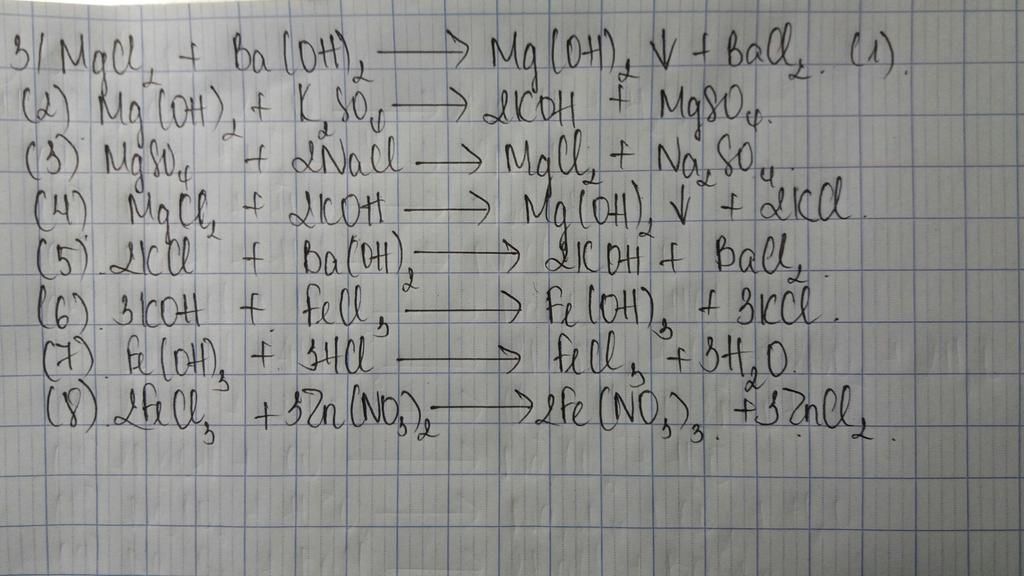 3/ MgCl₂ + Ba(OH)₂ → Mg(OH)₂ ↓ + BaCl₂. (1).
(2) Mg(OH)₂ + K₂SO₄ → 2KOH + MgSO₄.
(3) MgSO₄ + 2NaCl → MgCl₂ + Na₂SO₄.
(4) MgCl₂ + 2KOH → Mg(OH)₂ ↓ + 2KCl.
(5) 2KCl + Ba(OH)₂ → 2KOH + BaCl₂.
(6) 3KOH + FeCl₃ → Fe(OH)₃ + 3KCl.
(7) Fe(OH)₃ + 3HCl → FeCl₃ + 3H₂O.
(8) 2FeCl₃ + 3Zn(NO₃)₂ → 2Fe(NO₃)₃ + 3ZnCl₂.